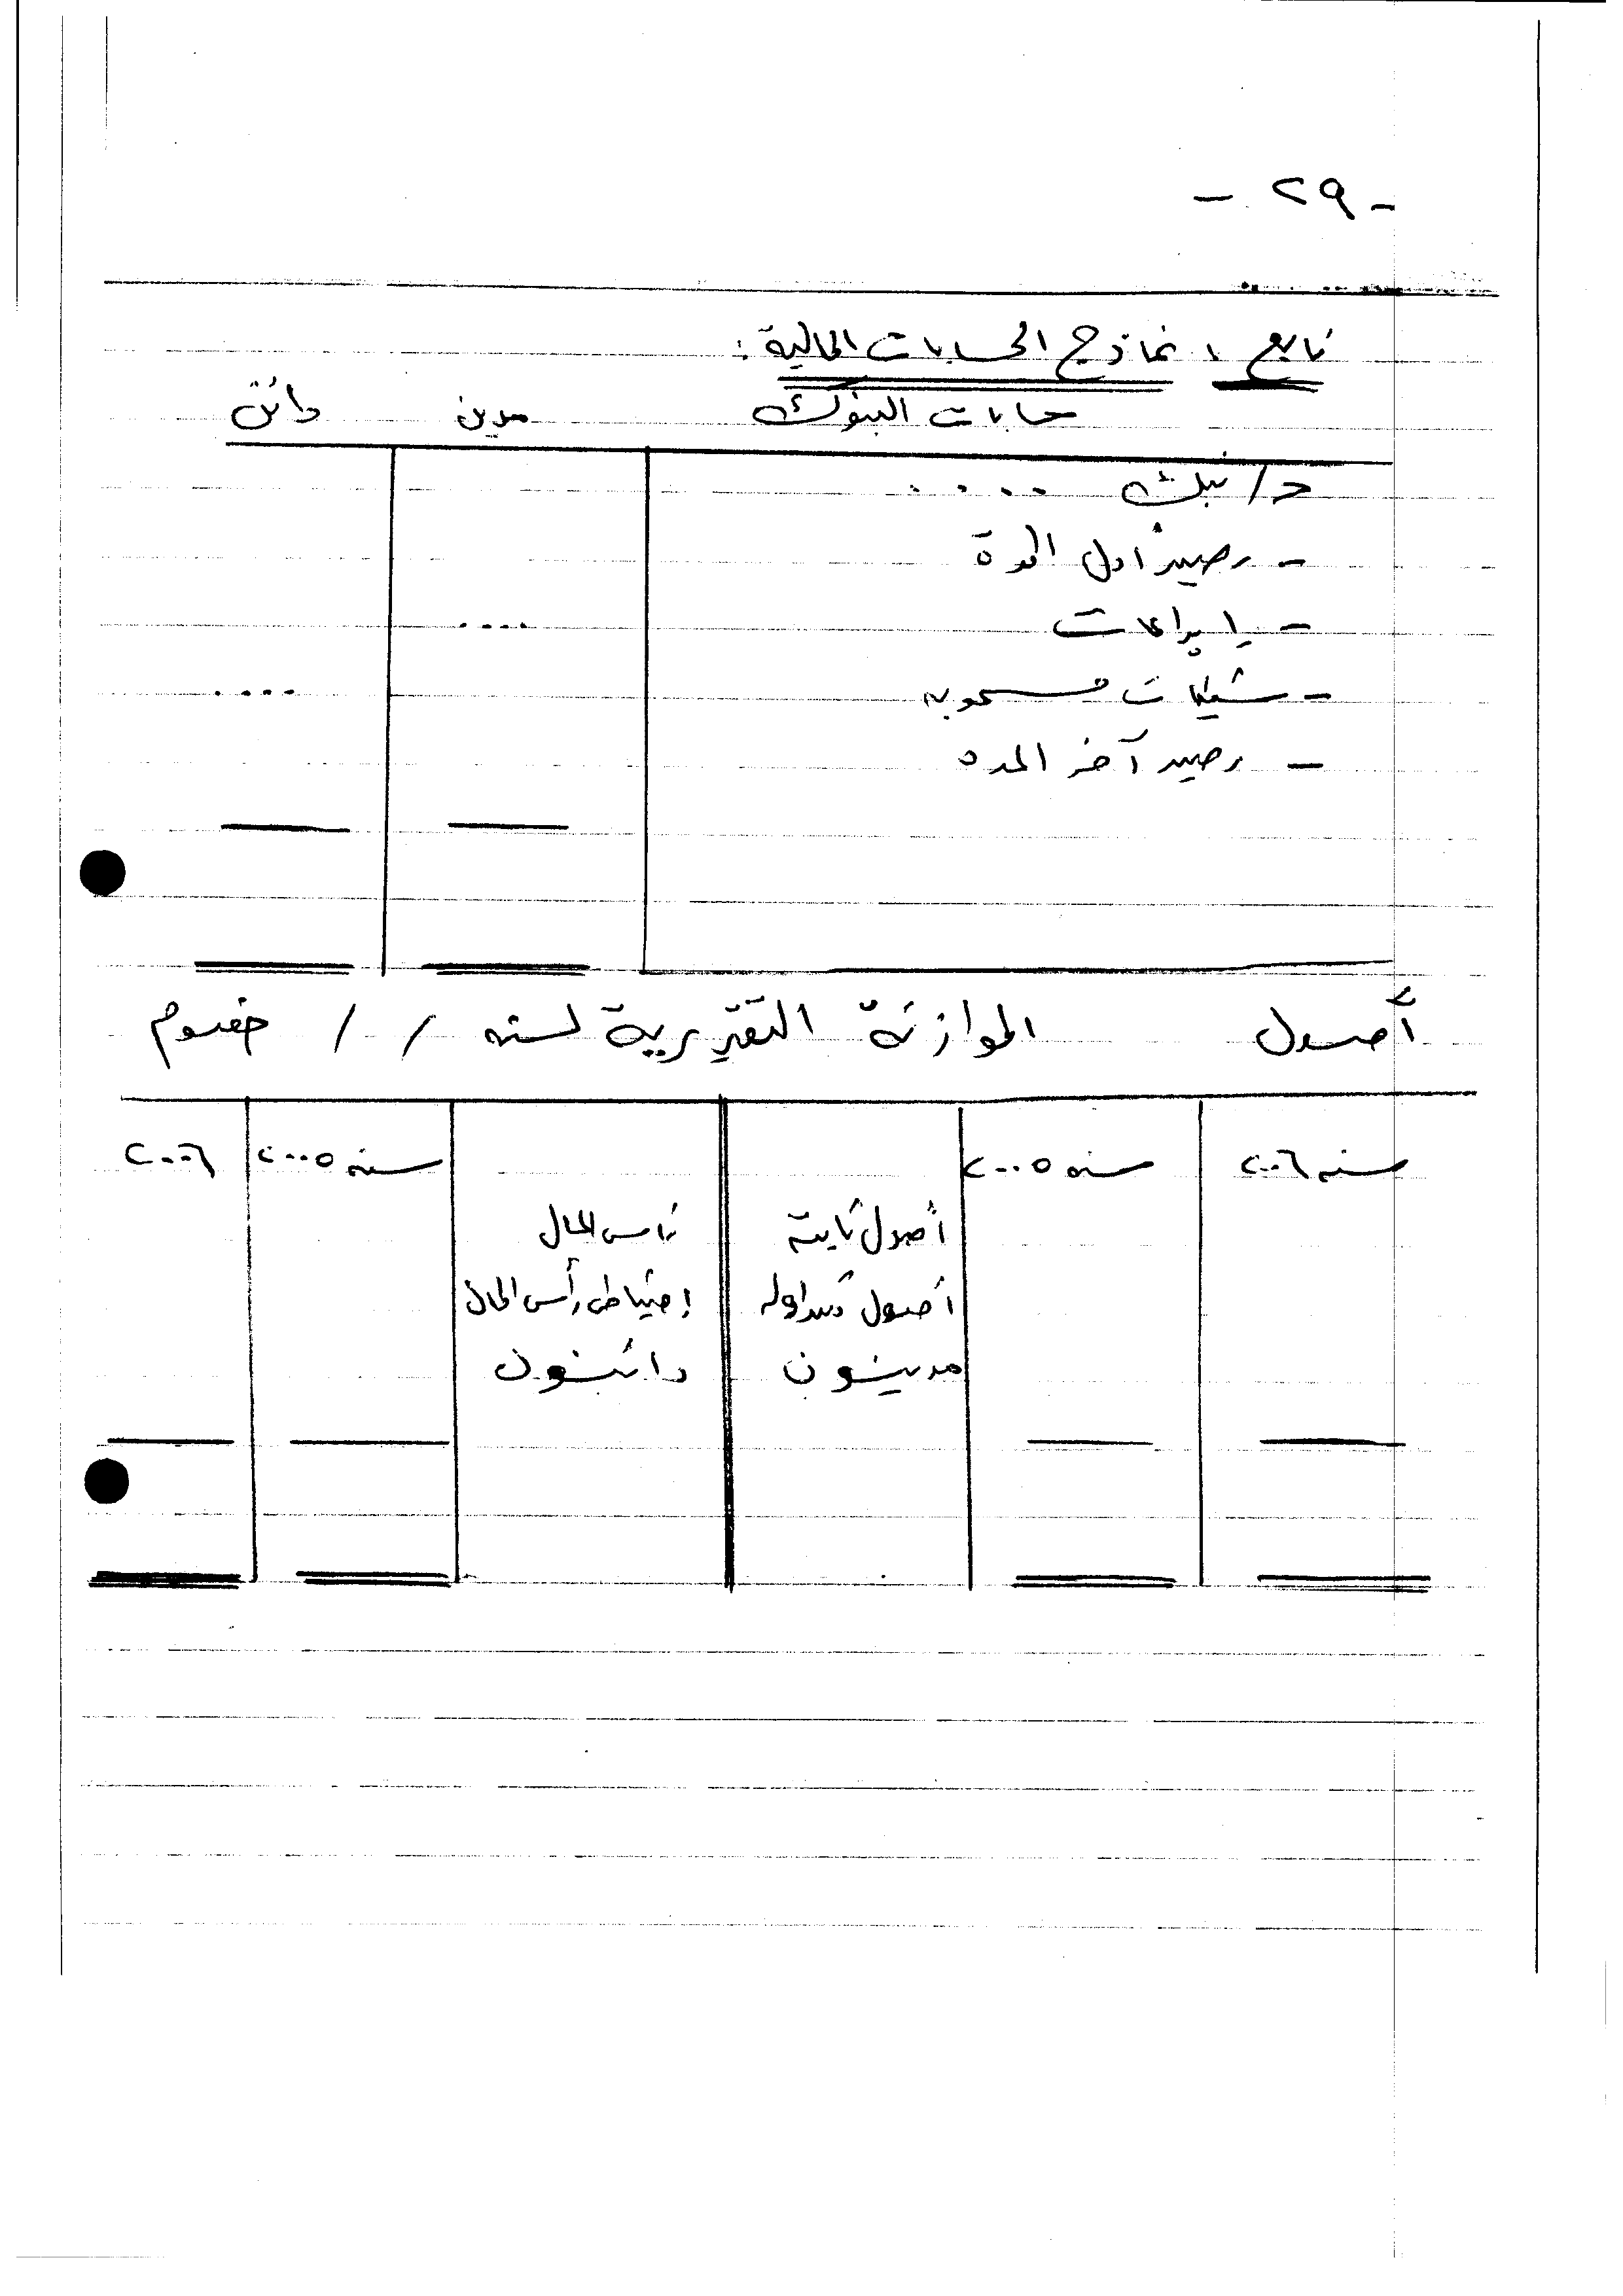 - ٢٩ -
تابع ، نماذج الحسابات المالية :
حسابات البنوك مدين دائن
ح/ بنك ....
- رصيد أول المدة
- إيداعات ....
- شيكات مسحوبه ....
- رصيد آخر المده
أصول الموازنة التقديرية لسنه / / خصوم
سنه ٢٠٠٦ سنه ٢٠٠٥ سنه ٢٠٠٥ ٢٠٠٦
أصول ثابته رأس المال
أصول متداوله إحتياطى رأس المال
مدينون دائنون